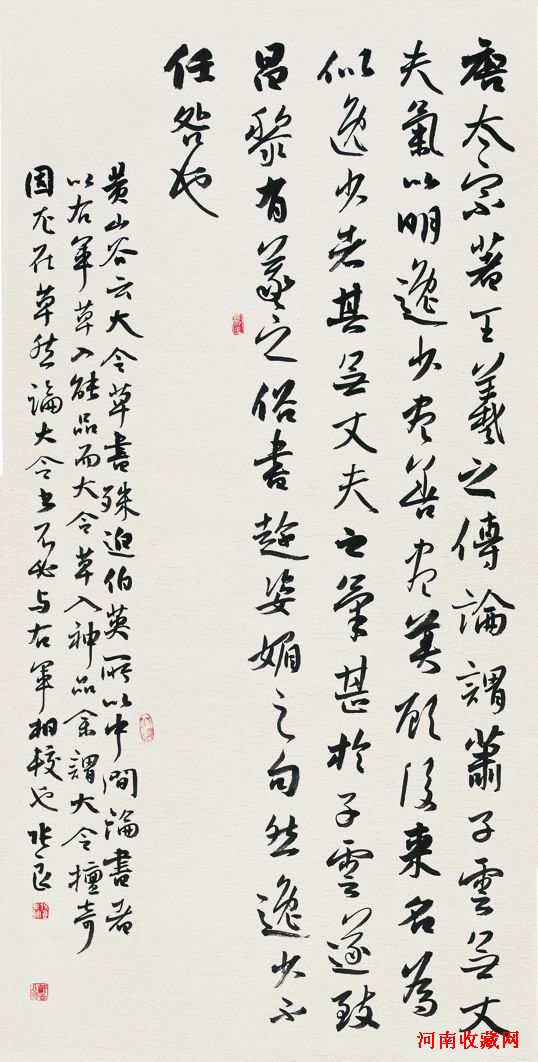 唐太宗著王羲之傳論謂蕭子雲無丈
夫氣以明逸少盡善盡美顧後來名為
似逸少者其無丈夫之氣甚於子雲遂致
昌黎有羲之俗書趁姿媚之句然逸少不
任咎也
黄山谷云大令草書殊迫伯英所以中間論書者
以右軍草入能品而大令草入神品余謂大令擅奇
固尤在草然論大令書不必与右軍相較也
河南收藏网